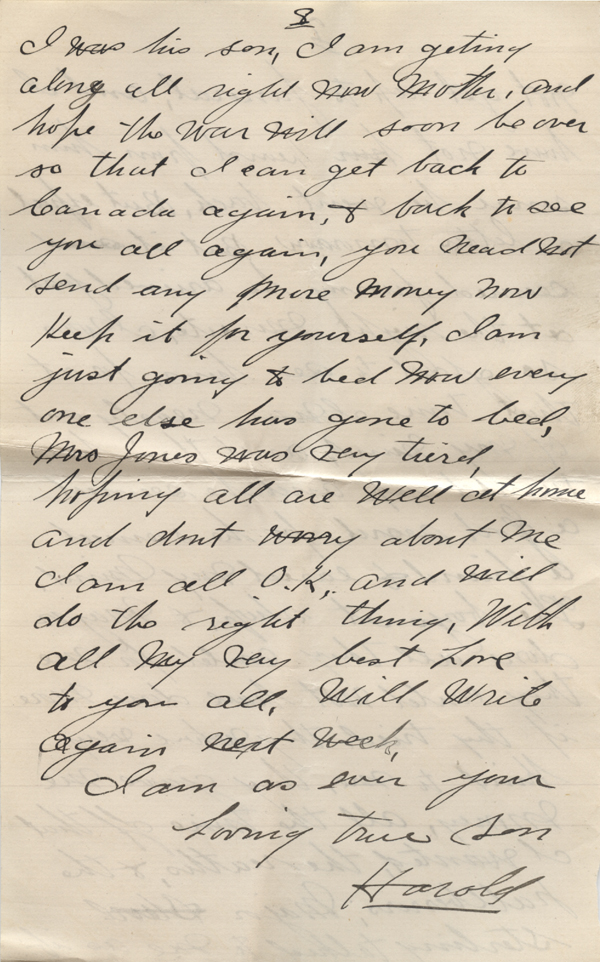 8
I was his son, I am geting
along all right now Mother, and
hope the war will soon be over
so that I can get back to
Canada again, & back to see
you all again, you nead not
send any more money now
Keep it for yourself, I am
just going to bed now every
one else has gone to bed,
Mrs Jones was very tierd,
hoping all are well at home
and dont worry about me
I am all O.K., and will
do the right thing, With
all my very best Love
to you all, Will Write
again next week,
I am as ever your
loving true son
Harold